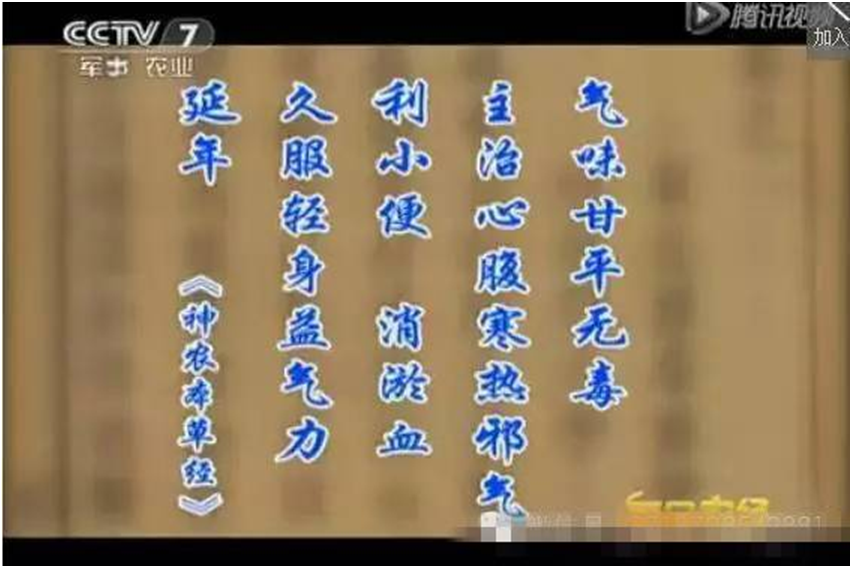 CCTV 7
军事 农业
腾讯视频
加入
气味甘平无毒
主治心腹寒热邪气
利小便 消淤血
久服轻身益气力
延年
《神农本草经》